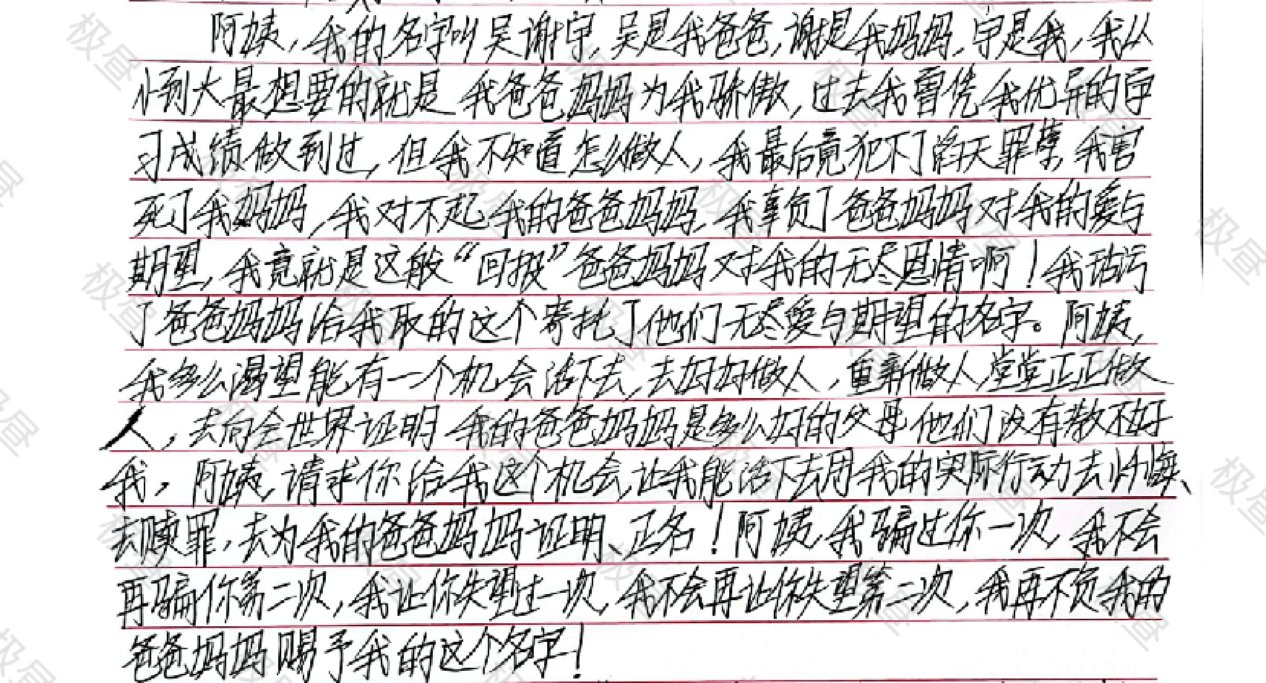 阿姨，我的名字叫吴谢宇，吴是我爸爸，谢是我妈妈，宇是我，我从
小到大最想要的就是我爸爸妈妈为我骄傲，过去我曾凭我优异的学
习成绩做到过，但我不知道怎么做人，我最后竟犯下了滔天罪孽，我害
死了我妈妈，我对不起我的爸爸妈妈，我辜负了爸爸妈妈对我的爱与
期望，我竟就是这般“回报”爸爸妈妈对我的无尽恩情啊！我玷污
了爸爸妈妈给我取的这个寄托了他们无尽爱与期望的名字。阿姨，
我多么渴望能有一个机会活下去，去好好做人，重新做人，堂堂正正做
人，去向全世界证明我的爸爸妈妈是多么好的父母，他们没有教不好
我。阿姨，请求你给我这个机会，让我能活下去用我的实际行动去忏悔、
去赎罪，去为我的爸爸妈妈证明、正名！阿姨，我骗过你一次，我不会
再骗你第二次，我让你失望过一次，我不会再让你失望第二次，我再不负我的
爸爸妈妈赐予我的这个名字！
极昼